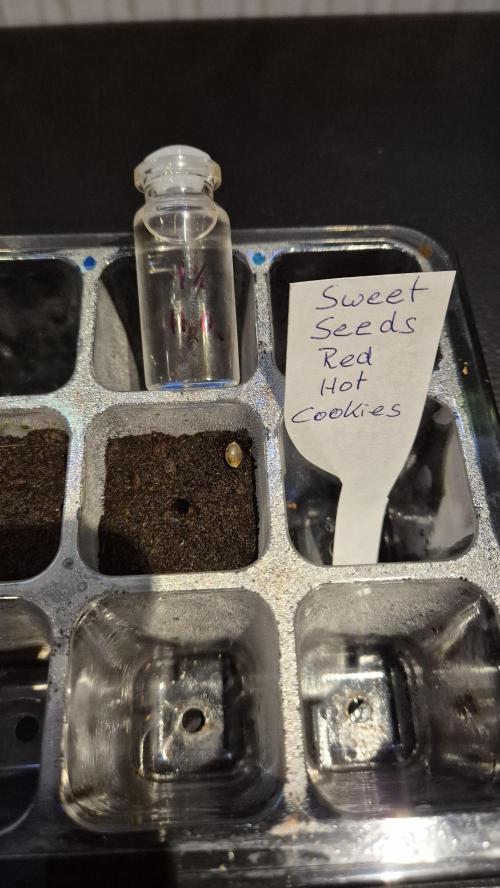 1%
Sweet
Seeds
Red
Hot
Cookies